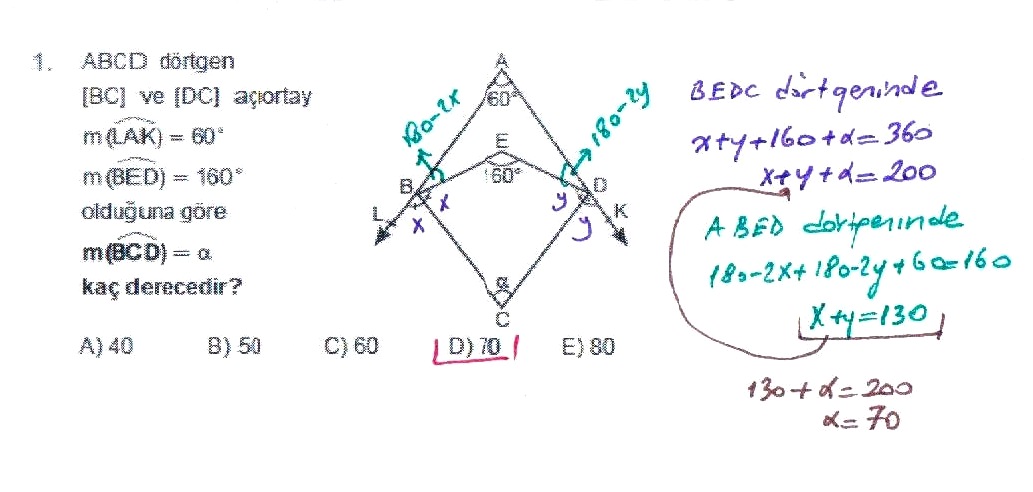 1. ABCD dörtgen
[BC] ve [DC] açıortay
m(LAK) = 60°
m(BED) = 160°
olduğuna göre
m(BCD) = α
kaç derecedir?
A) 40 B) 50 C) 60 D) 70 E) 80
A
60°
180-2x
180-2y
E
160°
B
D
x
y
L
K
x
y
α
C
BEDC dörtgeninde
x+y+160+α=360
x+y+α=200
ABED dörtgeninde
180-2x+180-2y+60=160
x+y=130
130+α=200
α=70